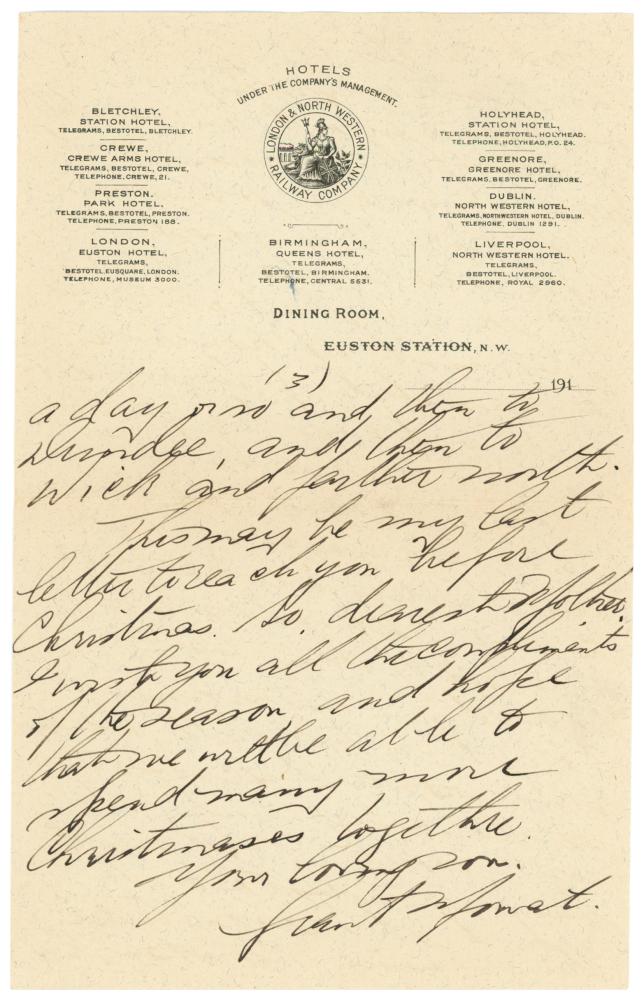 HOTELS
UNDER THE COMPANY'S MANAGEMENT.
LONDON & NORTH WESTERN
RAILWAY COMPANY
BLETCHLEY,
STATION HOTEL,
TELEGRAMS, BESTOTEL, BLETCHLEY.
CREWE,
CREWE ARMS HOTEL,
TELEGRAMS, BESTOTEL, CREWE,
TELEPHONE, CREWE, 21.
PRESTON.
PARK HOTEL,
TELEGRAMS, BESTOTEL, PRESTON.
TELEPHONE, PRESTON 188.
LONDON,
EUSTON HOTEL,
TELEGRAMS,
BESTOTEL, EUSQUARE, LONDON.
TELEPHONE, MUSEUM 3000.
BIRMINGHAM,
QUEENS HOTEL,
TELEGRAMS,
BESTOTEL, BIRMINGHAM.
TELEPHONE, CENTRAL 5631.
HOLYHEAD,
STATION HOTEL,
TELEGRAMS, BESTOTEL, HOLYHEAD.
TELEPHONE, HOLYHEAD, P.O. 24.
GREENORE,
GREENORE HOTEL,
TELEGRAMS, BESTOTEL, GREENORE.
DUBLIN.
NORTH WESTERN HOTEL,
TELEGRAMS, NORTHWESTERN HOTEL, DUBLIN.
TELEPHONE, DUBLIN 1291.
LIVERPOOL,
NORTH WESTERN HOTEL.
TELEGRAMS,
BESTOTEL, LIVERPOOL.
TELEPHONE, ROYAL 2960.
DINING ROOM,
EUSTON STATION, N.W.
191
(3)
a day or so and then to
Dundee, and then to
Wick and farther north.
This may be my last
letter to reach you before
Christmas. So, dearest Mother,
I wish you all the compliments
of the season, and hope
that we will be able to
spend many more
Christmases together.
Your loving son.
Grant Mowat.